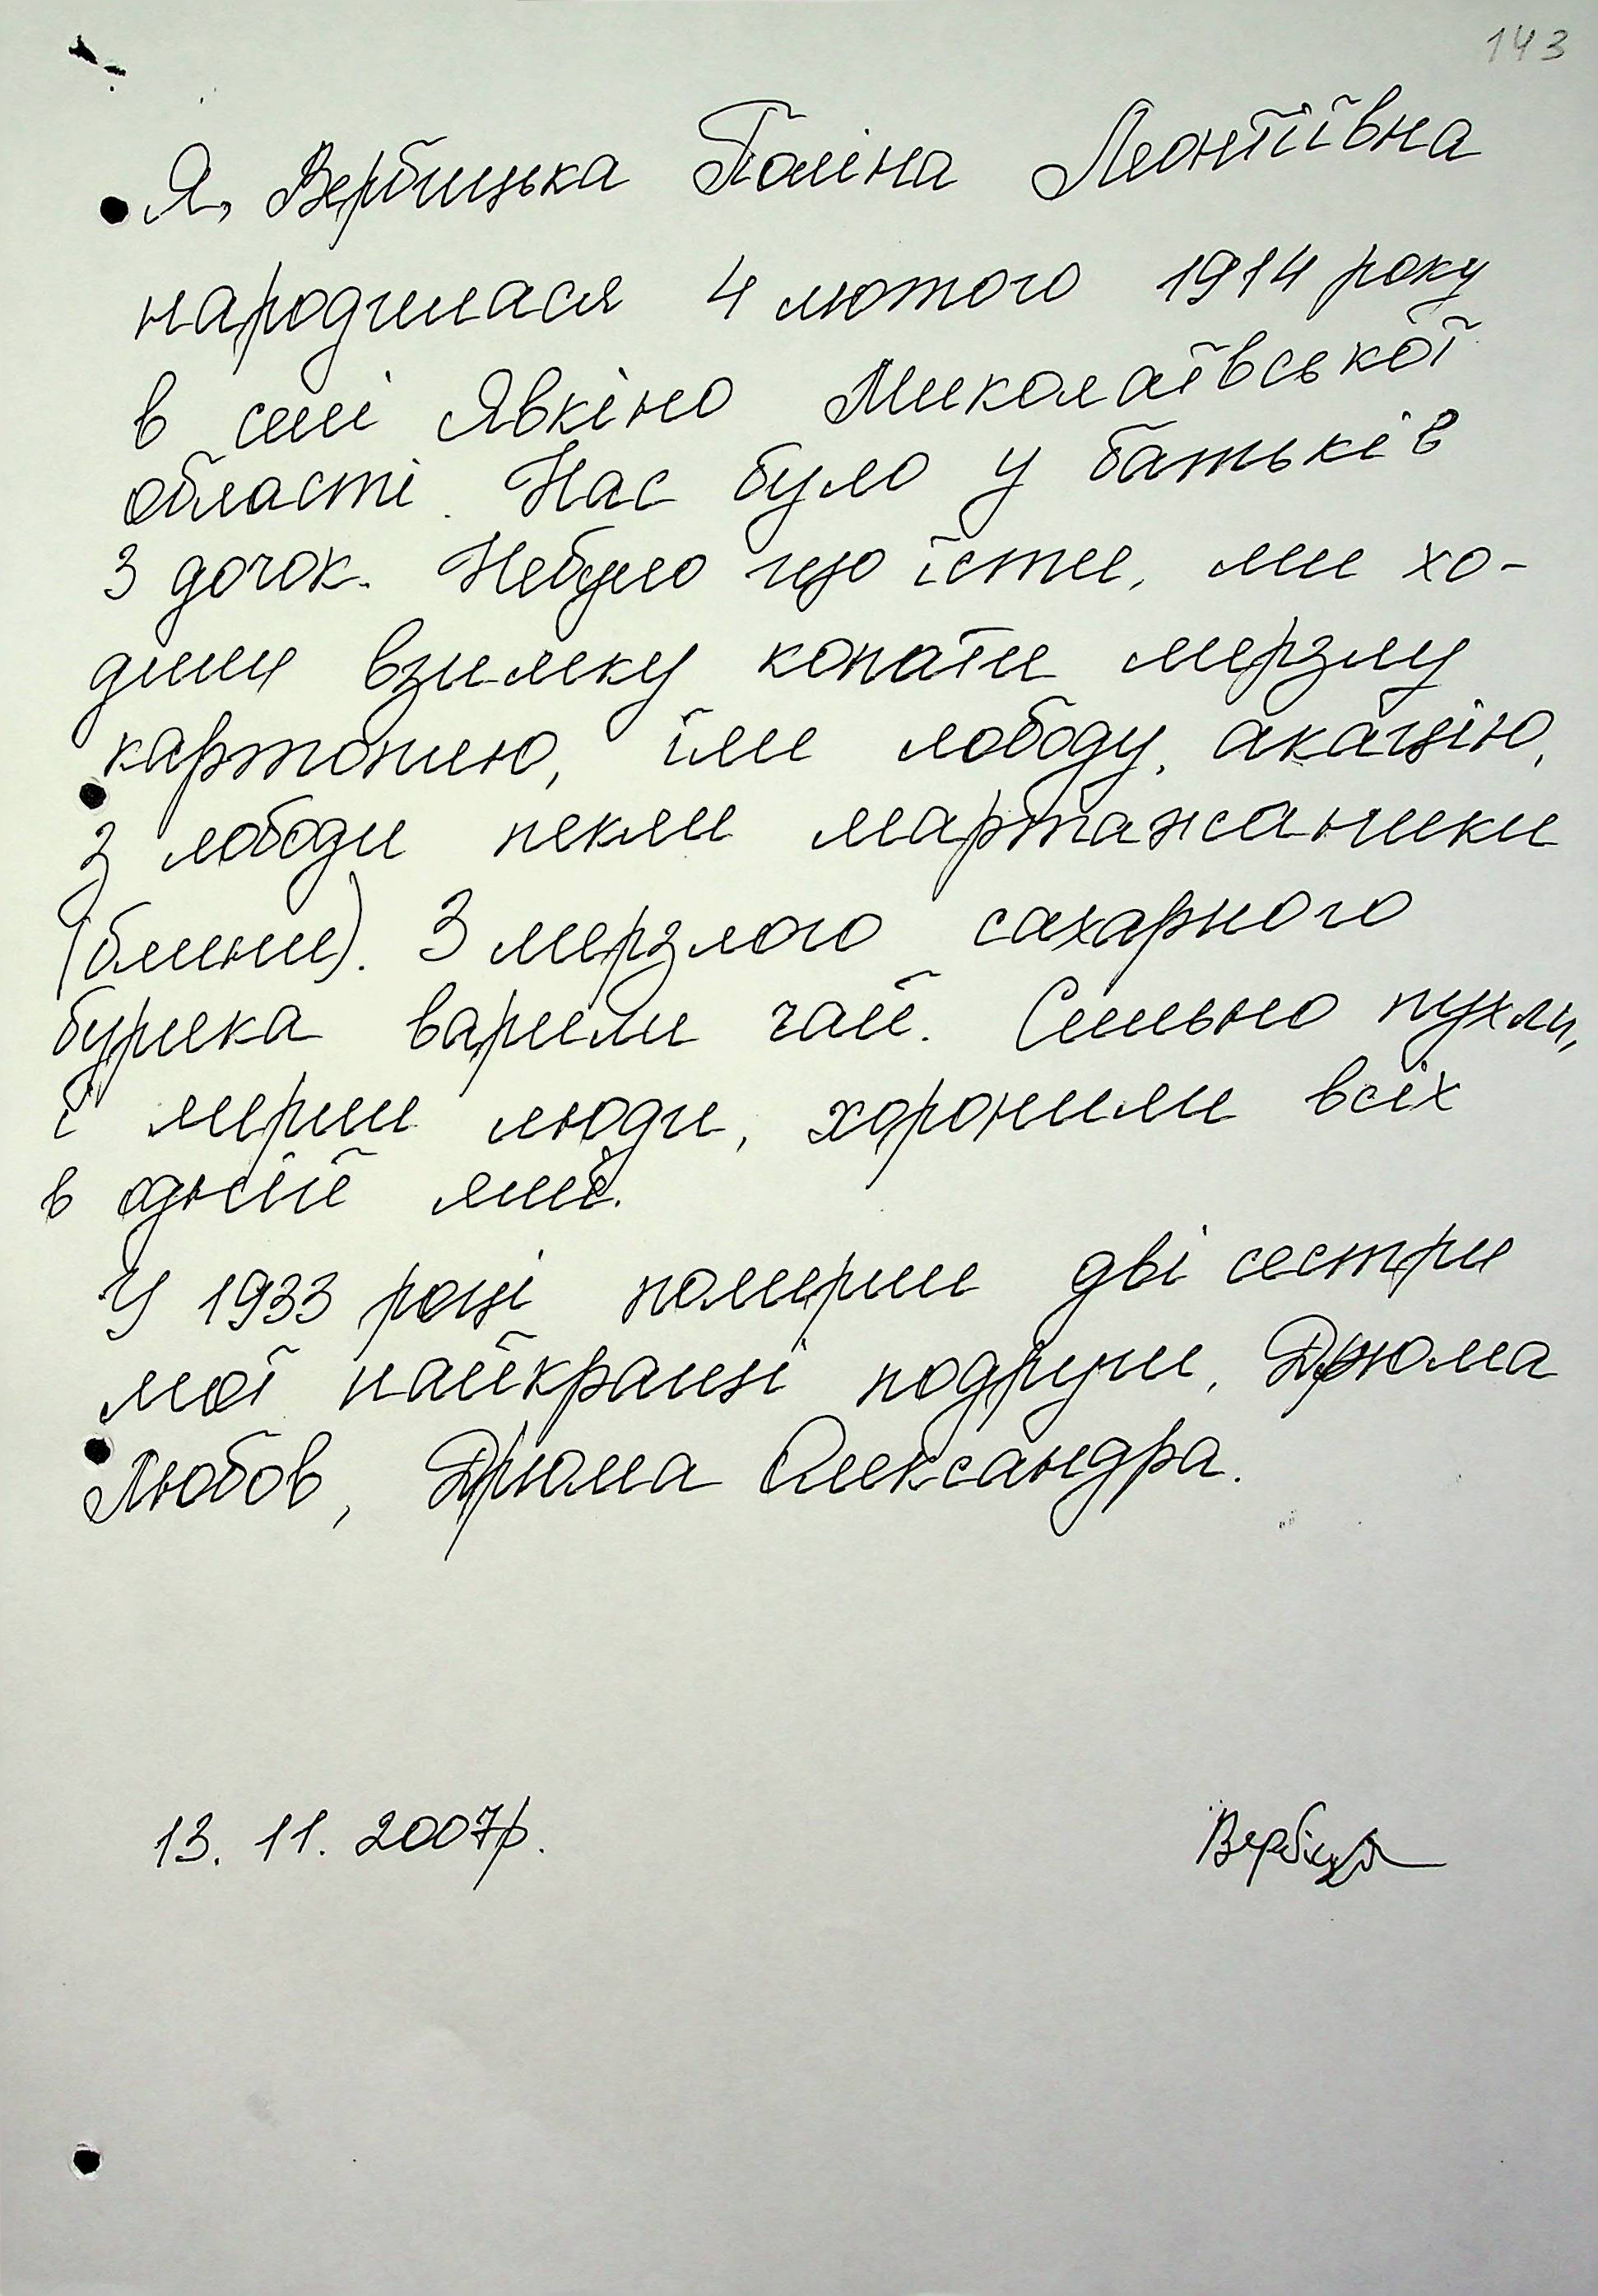 143
Я, Вербицька Поліна Леонтіївна
народилася 4 лютого 1914 року
в селі Явкіно Миколаївської
області. Нас було у батьків
3 дочок. Небуло що їсти, ми хо-
дили взимку копати мерзлу
картоплю, їли лободу, акацію,
з лободи пекли марта жаники
(блини). З мерзлого сахарного
буряка варили чай. Сильно пухли,
і мерли люди, хоронили всіх
в одній ямі.
У 1933 році померли дві сестри
мої найкращі подруги, Дрюма
Любов, Дрюма Олександра.
13. 11. 2007р.